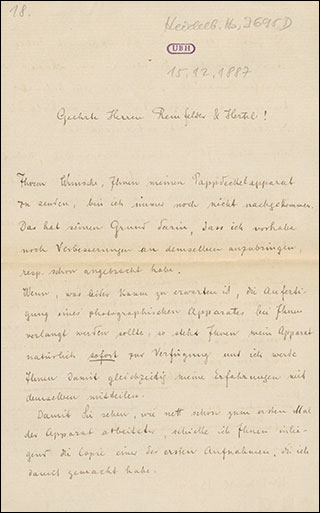 18.
Heidelb. Hs. 3695 D
UBH
15.12.1887
Geehrte Herren Reinfelder & Hertel!
Ihrem Wunsche, Ihnen meinen Pappdeckelapparat
zu senden, bin ich immer noch nicht nachgekommen.
Das hat seinen Grund darin, dass ich vorhabe
noch Verbesserungen an demselben anzubringen,
resp. schon angebracht habe.
Wenn, was leider kaum zu erwarten ist, die Anferti-
gung eines photographischen Apparates bei Ihnen
verlangt werden sollte, so steht Ihnen mein Apparat
natürlich sofort zur Verfügung und ich werde
Ihnen damit gleichzeitig meine Erfahrungen mit
demselben mitteilen.
Damit Sie sehen, wie nett schon zum ersten Mal
der Apparat arbeitete, schicke ich Ihnen inlie-
gend die Copie einer der ersten Aufnahmen, die ich
damit gemacht habe.